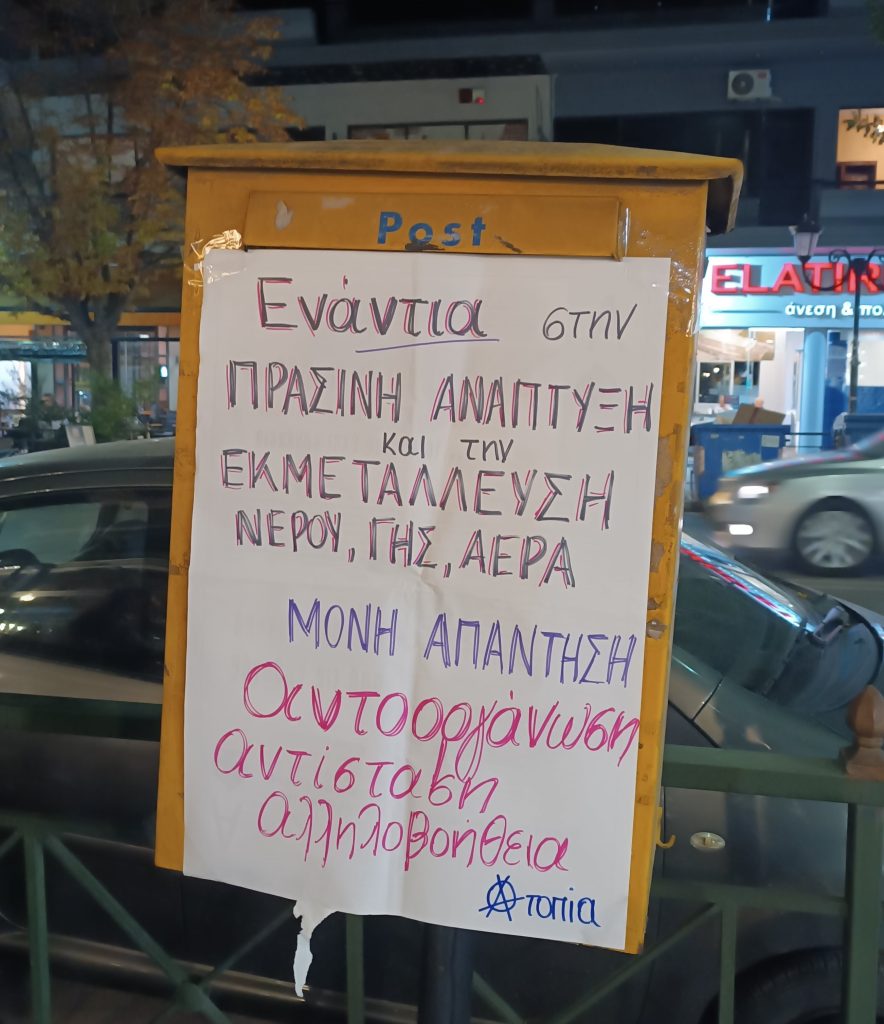 Post
Ενάντια στην
ΠΡΑΣΙΝΗ ΑΝΑΠΤΥΞΗ
και την
ΕΚΜΕΤΑΛΛΕΥΣΗ
ΝΕΡΟΥ, ΓΗΣ, ΑΕΡΑ
ΜΟΝΗ ΑΠΑΝΤΗΣΗ
αυτοοργάνωση
αντίσταση
αλληλοβοήθεια
Ατοπία
ELATIR
άνεση &